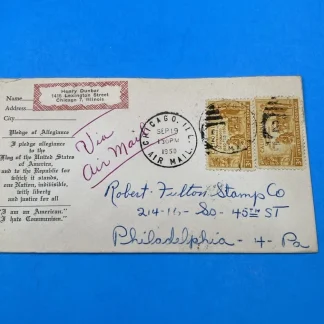 Henry Dunbar
1415 Lexington Street
Chicago 7, Illinois
Name
Address
City
Pledge of Allegiance
I pledge allegiance
to the
Flag of the United States
of America,
and to the Republic for
which it stands,
one Nation, indivisible,
with liberty
and justice for all
"I am an American."
I hate Communism."
Via
Air Mail
CHICAGO, ILL.
SEP 19
1950
AIR MAIL
Robert Felton Stamp Co
214-16- So- 45th ST
Philadelphia - 4 - Pa